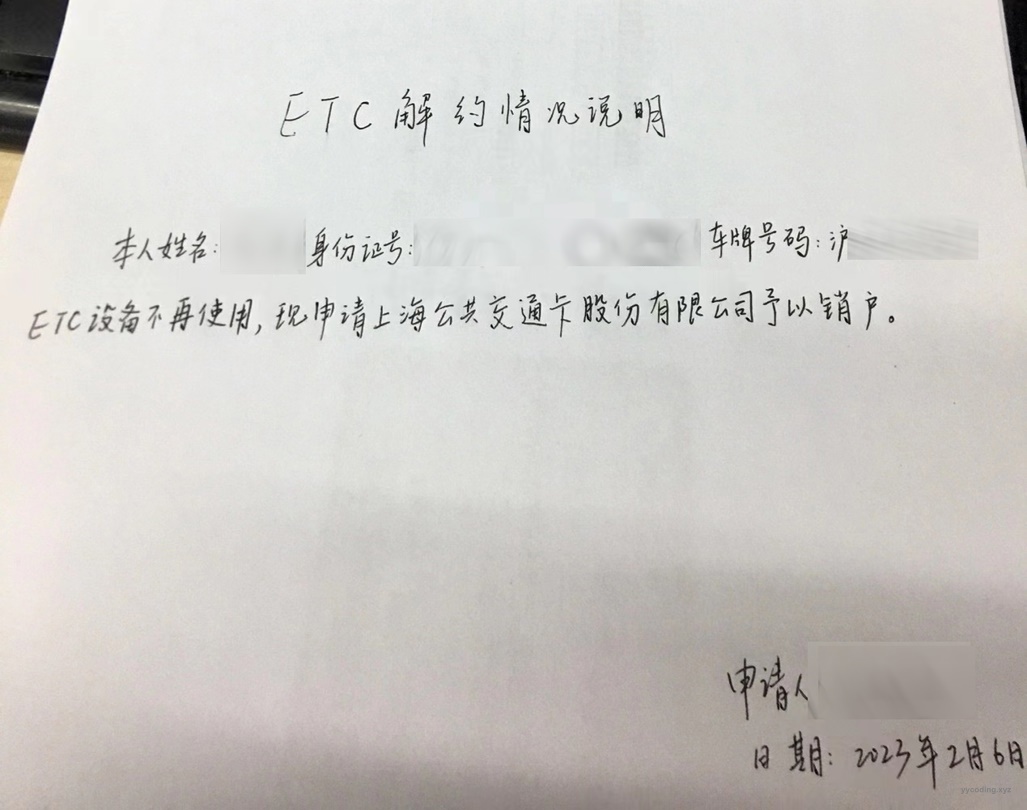 ETC解约情况说明
本人姓名: 身份证号: 车牌号码:沪
ETC设备不再使用,现申请上海公共交通卡股份有限公司予以销户。
申请人
日期: 2023年2月6日
yyooding.xyz